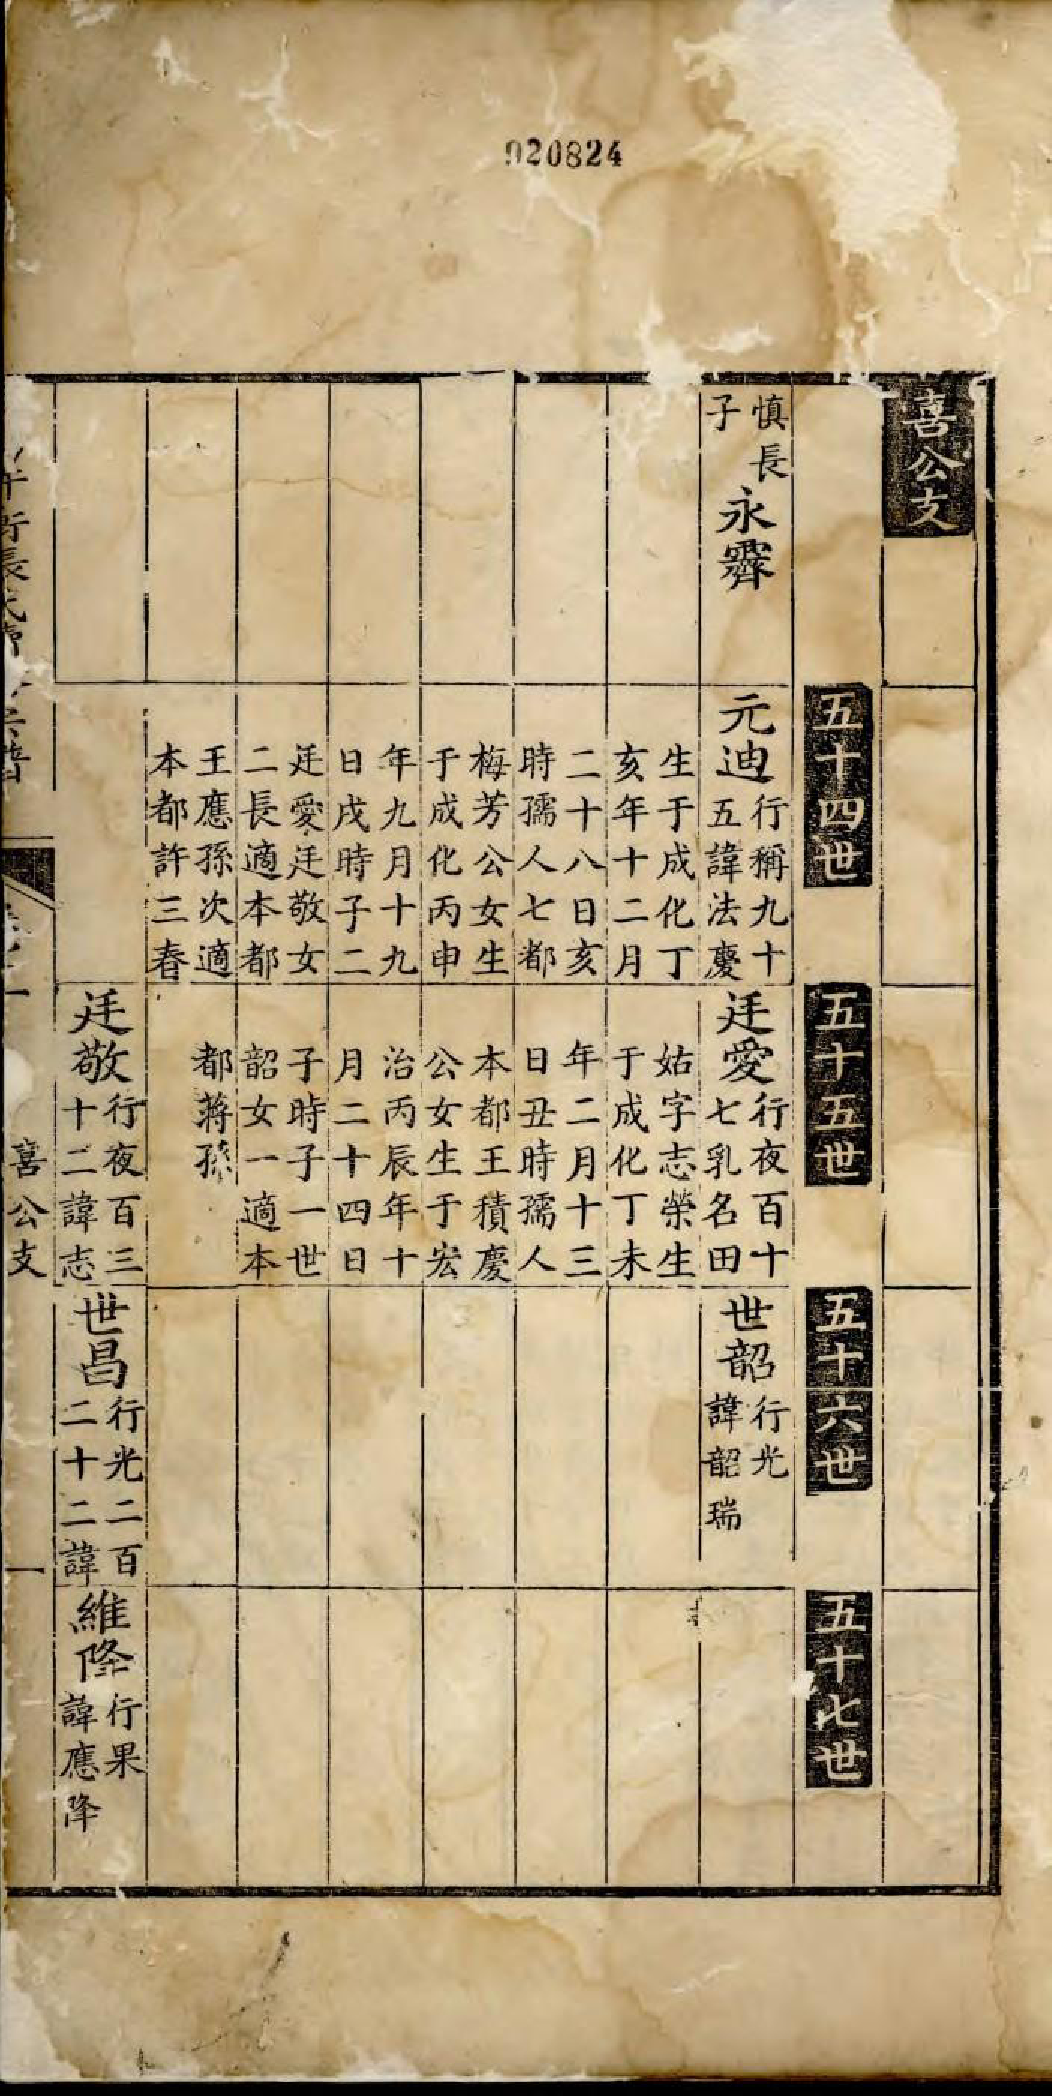 920824
喜公支
慎長
子
永霽
五十四世
元迪
行稱九十
五諱法慶
生于成化丁
亥年十二月
二十八日亥
時孺人七都
梅芳公女生
于成化丙申
年九月十九
日戌時子二
廷愛廷敬女
二長適本都
王應孫次適
本都許三春
五十五世
廷愛
行夜百十
七乳名田
姑字志榮生
于成化丁未
年二月十三
日丑時孺人
本都王積慶
公女生于宏
治丙辰年十
月二十四日
子時子一世
韶女一適本
都蔣孫
廷敬
行夜百三
十二諱志
五十六世
世韶
行光
諱韶瑞
世昌
行光二百
二十二諱
五十七世
維隆
行果
諱應隆
喜公支
一